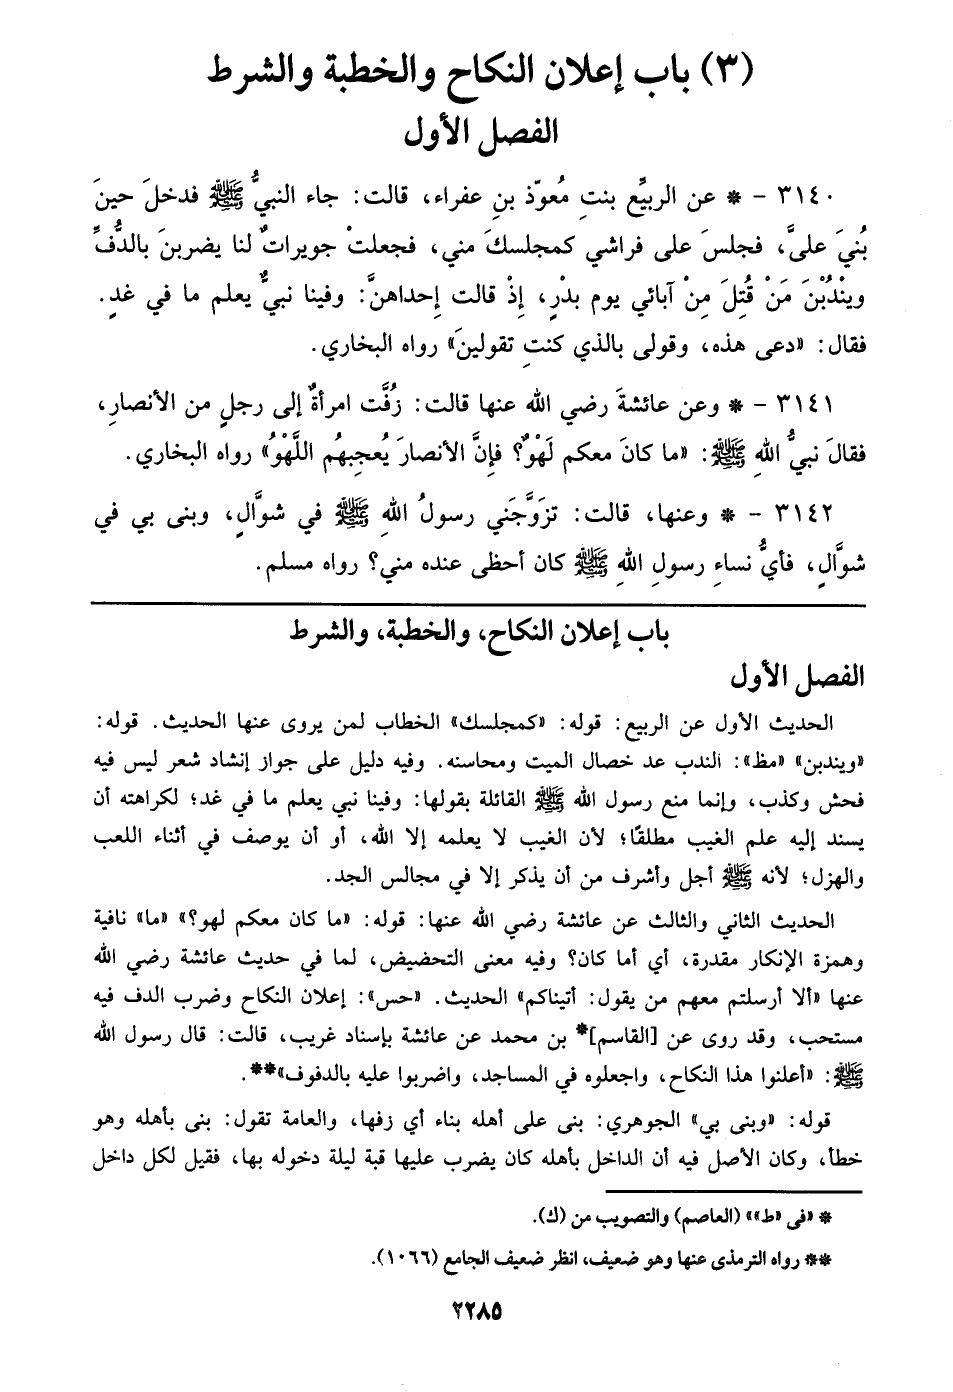 (٣) باب إعلان النكاح والخطبة والشرط
الفصل الأول
٣١٤٠ - * عن الربيِّع بنتِ مُعوّذ بنِ عفراء، قالت: جاء النبيُّ ﷺ فدخلَ حينَ
بُنيَ عليَّ، فجلسَ على فراشي كمجلسكَ مني، فجعلتْ جويراتٌ لنا يضربنَ بالدُّفِّ
ويندُبْنَ مَنْ قُتِلَ مِنْ آبائي يوم بدْرٍ، إذْ قالت إحداهنَّ: وفينا نبيٌّ يعلم ما في غدٍ.
فقال: «دعى هذه، وقولى بالذي كنتِ تقولينَ» رواه البخاري.
٣١٤١ - * وعن عائشةَ رضي الله عنها قالت: زُفَّت امرأةٌ إلى رجلٍ من الأنصارِ،
فقالَ نبيُّ اللهِ ﷺ: «ما كانَ معكم لَهْوٌ؟ فإنَّ الأنصارَ يُعجِبهُم اللَّهْوُ» رواه البخاري.
٣١٤٢ - * وعنها، قالت: تزوَّجَني رسولُ اللهِ ﷺ في شوَّالٍ، وبنى بي في
شوَّالٍ، فأيُّ نساءِ رسولِ اللهِ ﷺ كان أحظى عنده مني؟ رواه مسلم.
باب إعلان النكاح، والخطبة، والشرط
الفصل الأول
الحديث الأول عن الربيع: قوله: «كمجلسك» الخطاب لمن يروى عنها الحديث. قوله:
«ويندبن» «مظ»: الندب عد خصال الميت ومحاسنه. وفيه دليل على جواز إنشاد شعر ليس فيه
فحش وكذب، وإنما منع رسول الله ﷺ القائلة بقولها: وفينا نبي يعلم ما في غد؛ لكراهته أن
يسند إليه علم الغيب مطلقًا؛ لأن الغيب لا يعلمه إلا الله، أو أن يوصف في أثناء اللعب
والهزل؛ لأنه ﷺ أجل وأشرف من أن يذكر إلا في مجالس الجد.
الحديث الثاني والثالث عن عائشة رضي الله عنها: قوله: «ما كان معكم لهو؟» «ما» نافية
وهمزة الإنكار مقدرة، أي أما كان؟ وفيه معنى التحضيض، لما في حديث عائشة رضي الله
عنها «ألا أرسلتم معهم من يقول: أتيناكم» الحديث. «حس»: إعلان النكاح وضرب الدف فيه
مستحب، وقد روى عن [القاسم]* بن محمد عن عائشة بإسناد غريب، قالت: قال رسول الله
ﷺ: «أعلنوا هذا النكاح، واجعلوه في المساجد، واضربوا عليه بالدفوف»**.
قوله: «وبنى بي» الجوهري: بنى على أهله بناء أي زفها، والعامة تقول: بنى بأهله وهو
خطأ، وكان الأصل فيه أن الداخل بأهله كان يضرب عليها قبة ليلة دخوله بها، فقيل لكل داخل
* «في «ط»» (العاصم) والتصويب من (ك).
** رواه الترمذى عنها وهو ضعيف، انظر ضعيف الجامع (١٠٦٦).
٢٢٨٥